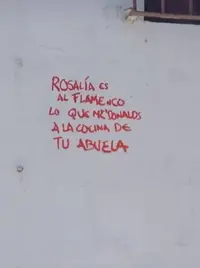 ROSALÍA ES
AL FLAMENCO
LO QUE MC'DONALDS
A LA COCINA DE
TU ABUELA